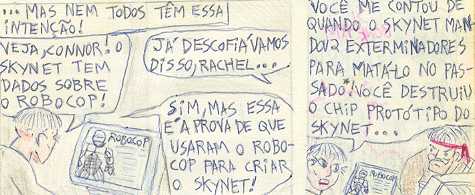 ...MAS NEM TODOS TÊM ESSA
INTENÇÃO!
VEJA, CONNOR! O
SKYNET TEM
DADOS SOBRE
O ROBOCOP!
JÁ DESCOFIÁVAMOS
DISSO, RACHEL...
ROBOCOP
SIM, MAS ESSA
É A PROVA DE QUE
USARAM O ROBO-
COP PARA CRIAR
O SKYNET!
VOCÊ ME CONTOU DE
QUANDO O SKYNET MAN-
DOU 2 EXTERMINADORES
PARA MATÁ-LO NO PAS-
SADO.* VOCÊ DESTRUIU
O CHIP PROTÓTIPO DO
SKYNET...
ROBOCOP